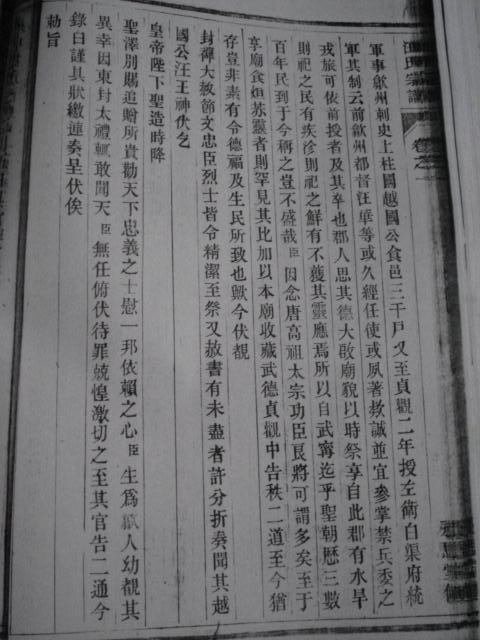 汪氏宗譜
卷之一
軍事歙州刺史上柱國越國公食邑三千戶又至貞觀二年授左衛白渠府統
軍其制云前歙州都督汪華等或久經任使或夙著款誠並宜參掌禁兵委之
戎旅可依前授者及其卒也郡人思其德大啟廟貌以時祭享自此郡有水旱
則祀之民有疾沴則祀之鮮有不獲其靈應焉所以自武寧迄乎聖朝歷三數
百年民到于今稱之豈不盛哉臣因念唐高祖太宗功臣良將可謂多矣至于
享廟食烜苏靈者則罕見其比加以本廟收藏武德貞觀中告秩二道至今猶
存豈非素有令德福及生民所致也歟今伏覩
封禪大赦節文忠臣烈士皆令精潔至祭又赦書有未盡者許分折奏聞其越
國公汪王神伏乞
皇帝陛下聖造時降
聖澤別賜追贈所貴勸天下忠義之士慰一邦依賴之心臣生爲歙人幼覩其
異幸因東封太禮輒敢聞天臣無任俯伏待罪兢惶激切之至其官告二通今
錄白謹具狀繳連奏呈伏俟
勅旨